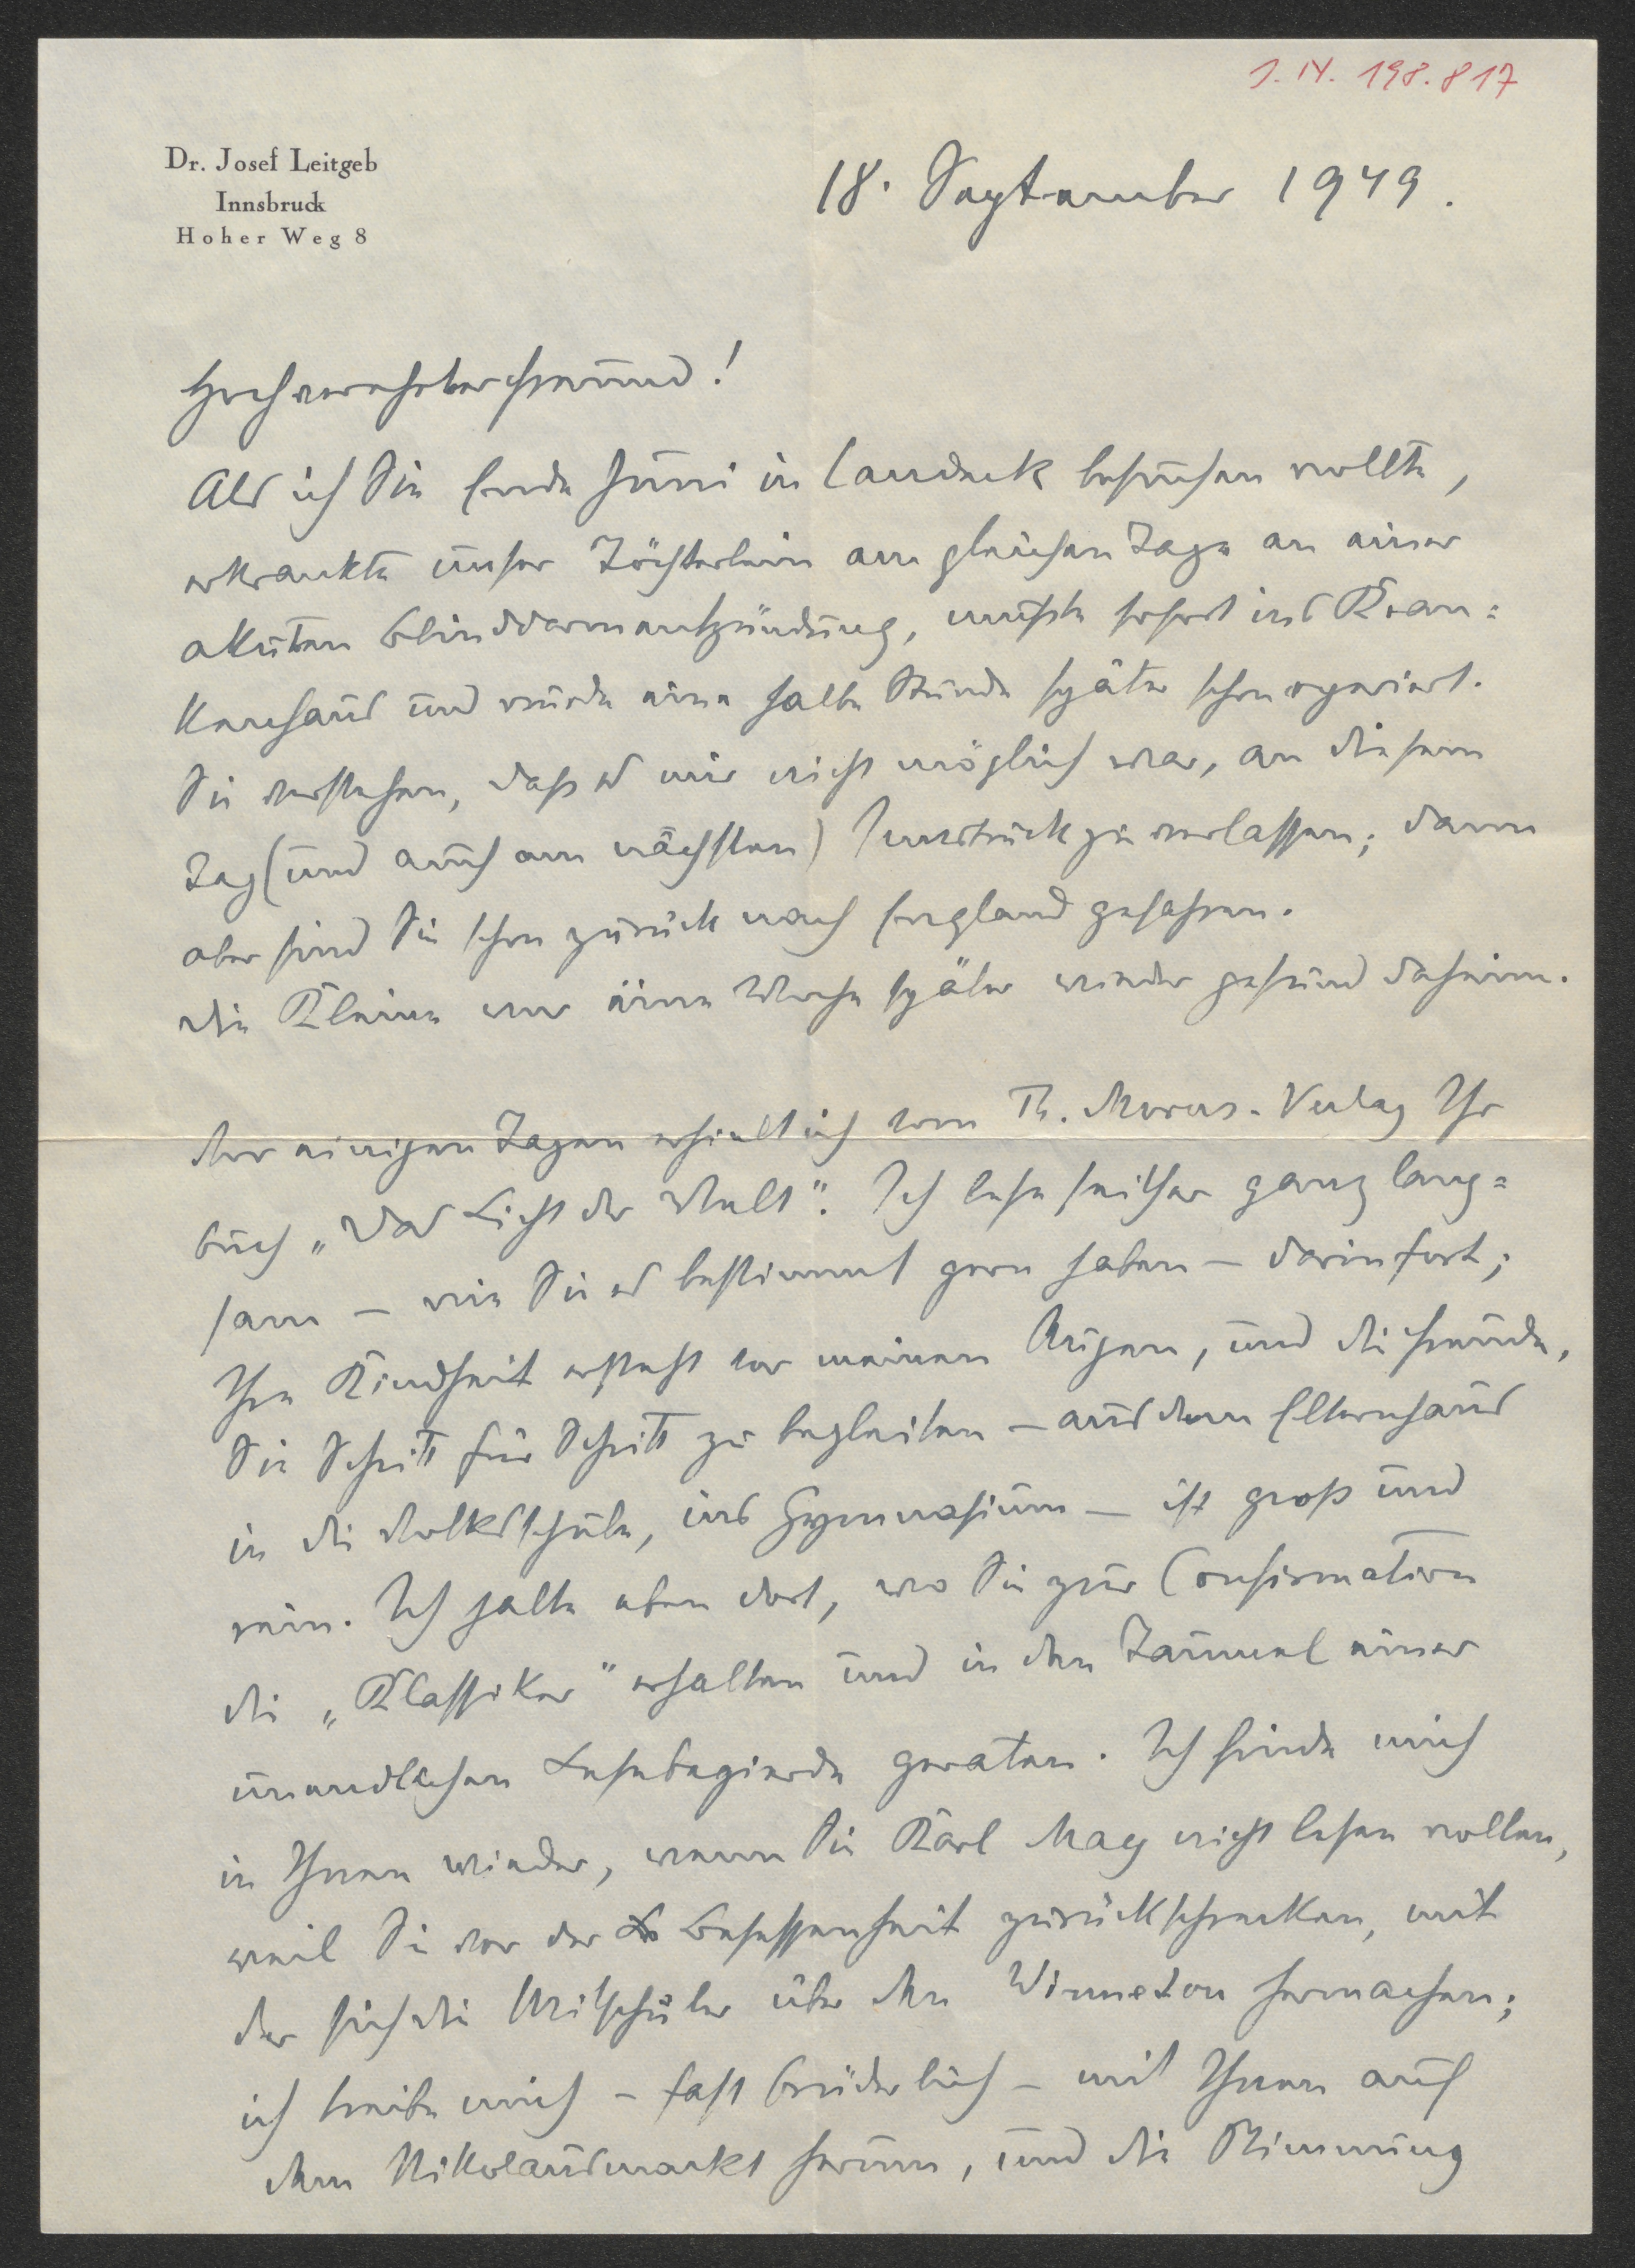 J. N. 198.817
Dr. Josef Leitgeb
Innsbruck
Hoher Weg 8
18. September 1949.
Hochverehrter Freund!
Als ich Sie Ende Juni in Landeck besuchen wollte,
erkrankte unser Töchterlein am gleichen Tage an einer
akuten Blinddarmentzündung, mußte sofort ins Kran=
kenhaus und wurde eine halbe Stunde später schon operiert.
Sie verstehen, daß es mir nicht möglich war, an diesem
Tag (und auch am nächsten) Innsbruck zu verlassen; dann
aber sind Sie schon zurück nach England gefahren.
Die Kleine war eine Woche später wieder gesund daheim.
Vor einigen Tagen erhielt ich vom Th. Morus-Verlag Ihr
Buch „Das Licht der Welt". Ich lese seither ganz lang=
sam – wie Sie es bestimmt gern haben – darin fort;
Ihre Kindheit ersteht vor meinen Augen, und die Freude,
Sie Schritt für Schritt zu begleiten – aus dem Elternhaus
in die Volksschule, ins Gymnasium – ist groß und
rein. Ich halte eben dort, wo Sie zur Confirmation
die „Klassiker" erhalten und in den Taumel einer
unendlichen Lesebegierde geraten. Ich finde mich
in Ihnen wieder, wenn Sie Karl May nicht lesen wollen,
weil Sie vor der Besessenheit zurückschrecken, mit
der sich die Mitschüler über den Winnetou hermachen;
ich treibe mich – fast brüderlich – mit Ihnen auf
dem Nikolausmarkt herum, und die Stimmung